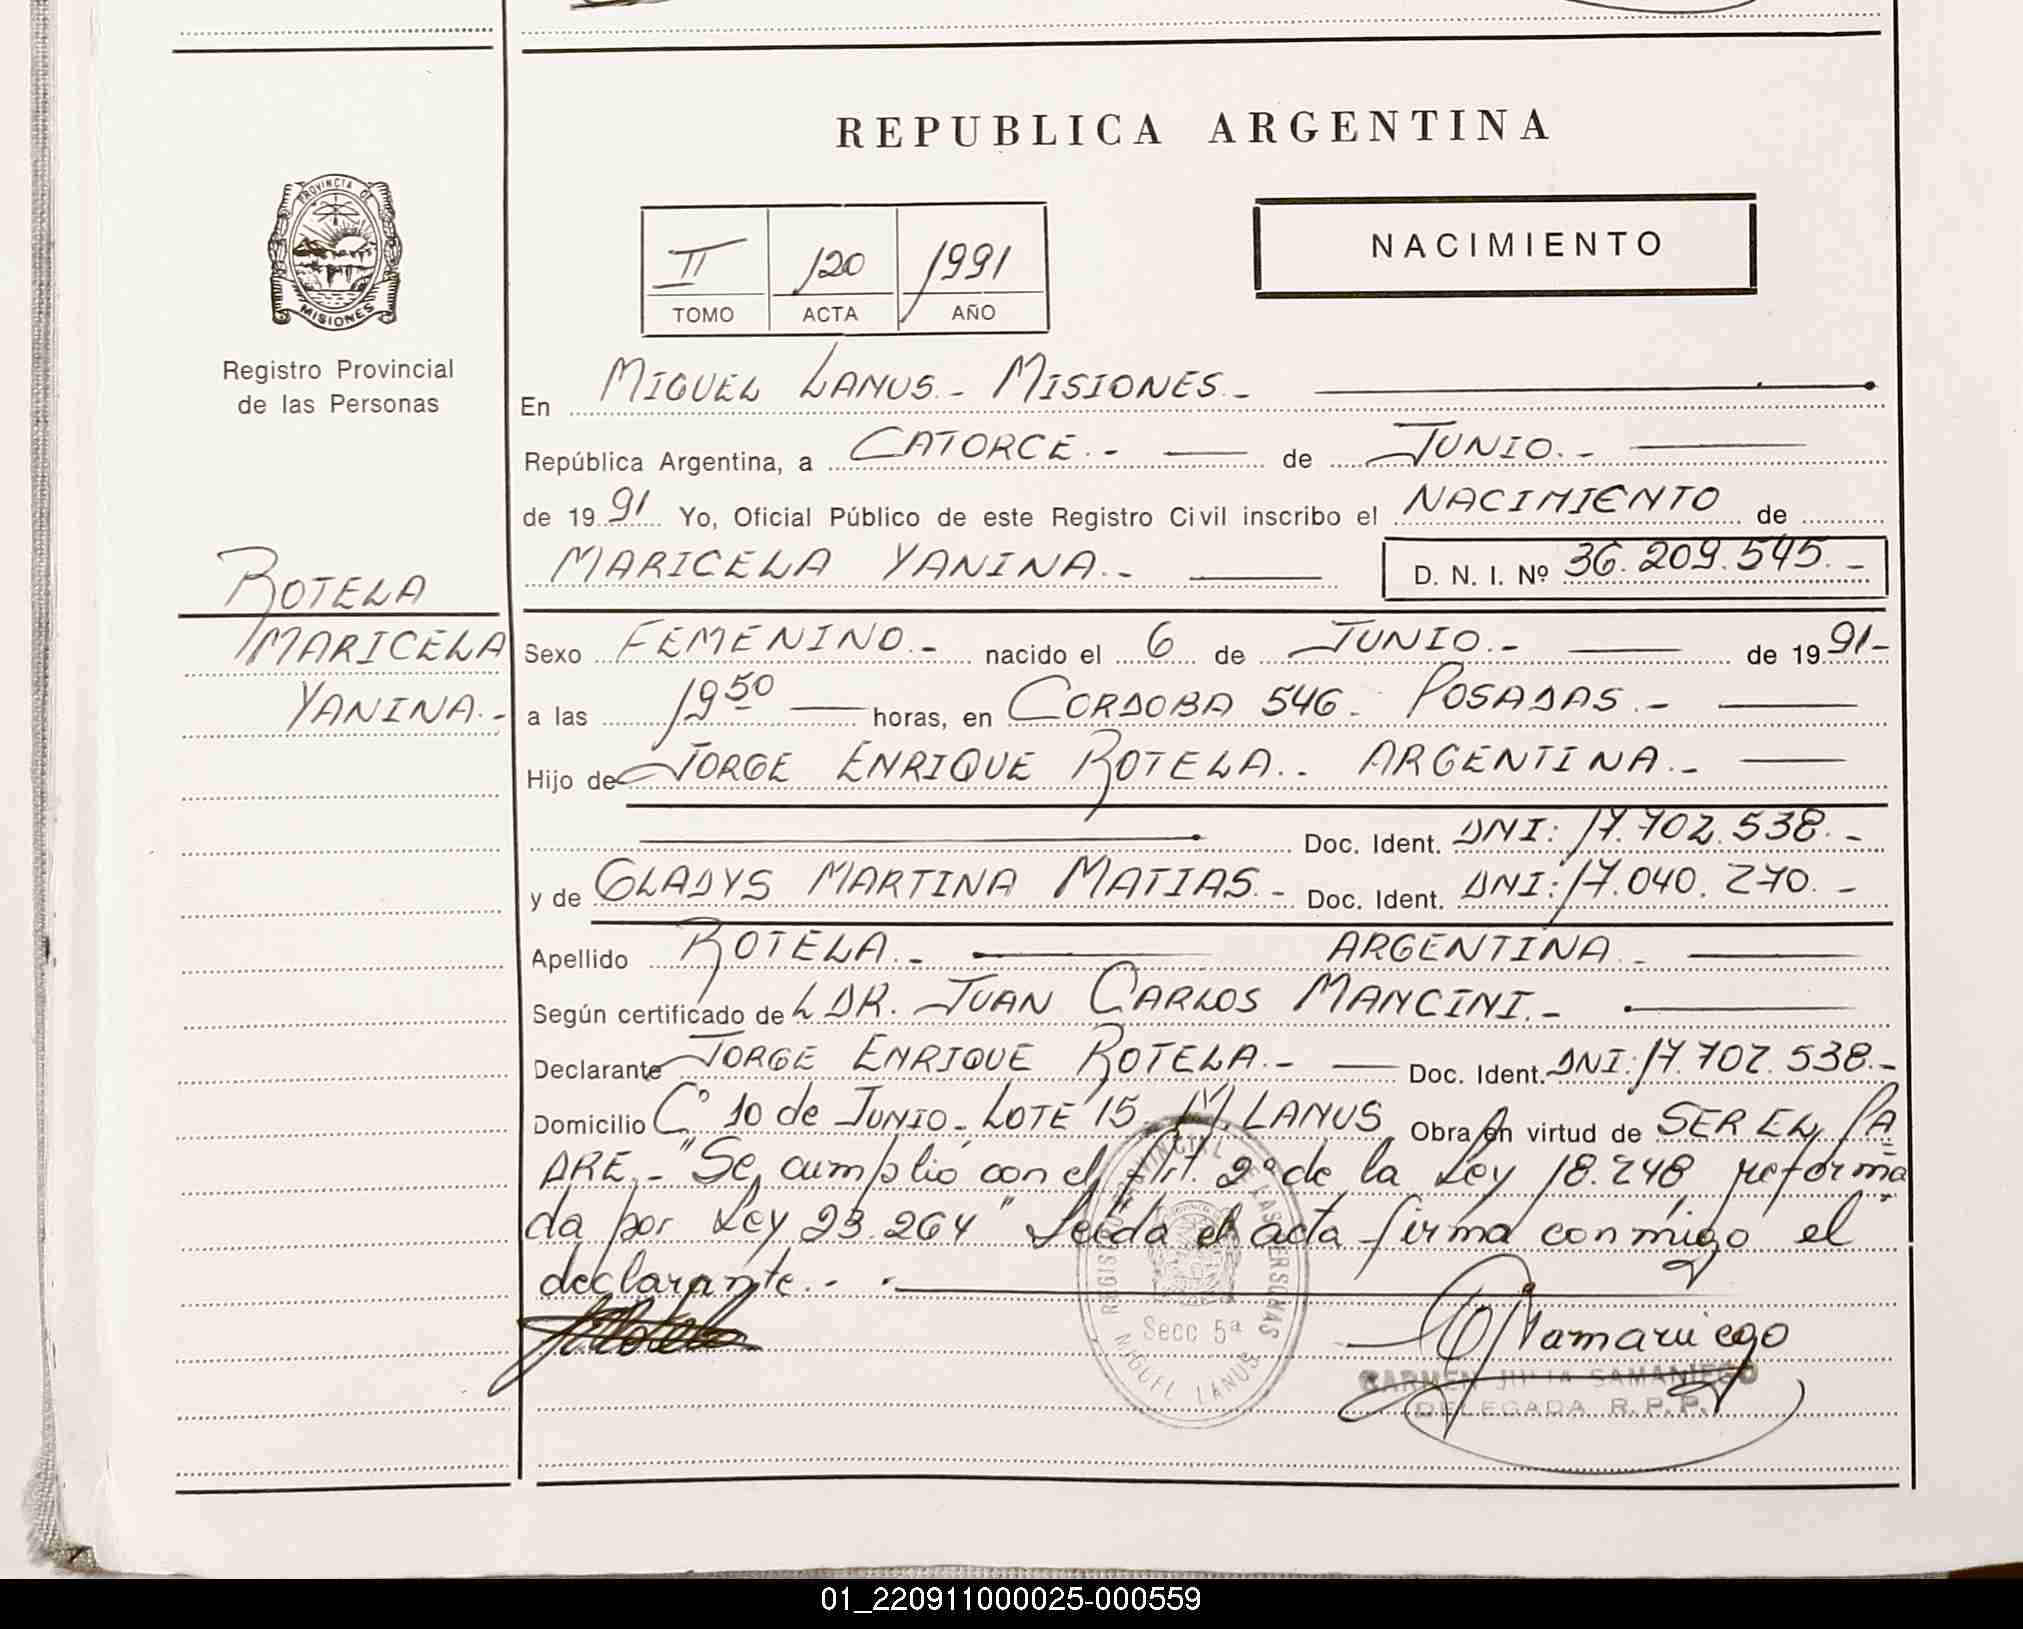 REPUBLICA ARGENTINA
PROVINCIA DE
MISIONES
Registro Provincial
de las Personas
II 120 1991
TOMO ACTA AÑO
NACIMIENTO
En MIGUEL LANUS.- MISIONES.-
República Argentina, a CATORCE.- de JUNIO.-
de 1991 Yo, Oficial Público de este Registro Civil inscribo el NACIMIENTO de
MARICELA YANINA.- D. N. I. Nº 36.209.545.-
ROTELA
MARICELA
YANINA.-
Sexo FEMENINO.- nacido el 6 de JUNIO.- de 1991-
a las 19 50 horas, en CORDOBA 546. POSADAS.-
Hijo de JORGE ENRIQUE ROTELA.. ARGENTINA.-
Doc. Ident. DNI: 17.702.538.-
y de GLADYS MARTINA MATIAS.- Doc. Ident. DNI: 17.040.270.-
Apellido ROTELA.- ARGENTINA.-
Según certificado de L DR. JUAN CARLOS MANCINI.-
Declarante JORGE ENRIQUE ROTELA.- Doc. Ident. DNI: 17.702.538.-
Domicilio Cº 10 de JUNIO- LOTE 15, M. LANUS Obra en virtud de SER EL PA
DRE.- "Se cumplio con el Art. 2º de la Ley 18.248 reforma
da por Ley 23.264" Leída el acta firma conmigo el
declarante.-
REGISTRO PROVINCIAL DE LAS PERSONAS
Secc 5ª
MIGUEL LANUS
Samaniego
CARMEN JULIA SAMANIEGO
DELEGADA R.P.P.
01_220911000025-000559